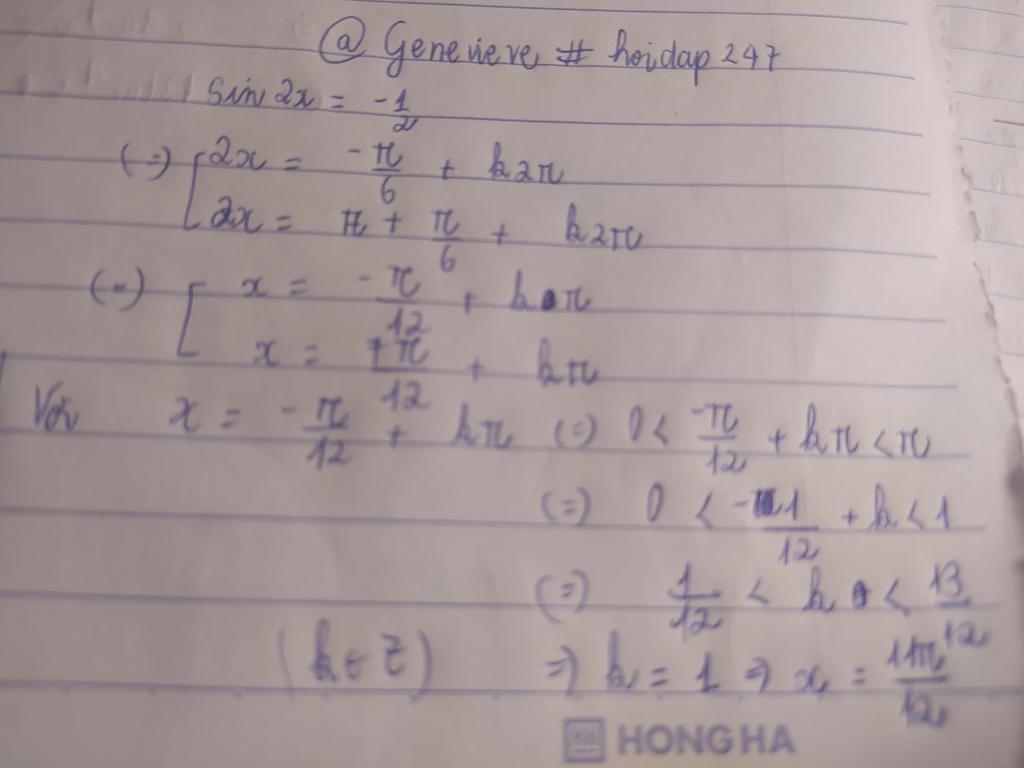 @ Genevieve # hoidap 247
sin 2x = -1/2
(=) [ 2x = -π/6 + k2π
2x = π + π/6 + k2π
(=) [ x = -π/12 + kπ
x = 7π/12 + kπ
Với x = -π/12 + kπ (=) 0 < -π/12 + kπ < π
(=) 0 < -1/12 + k < 1
(=) 1/12 < k < 13/12
(k ∈ Z) => k = 1 => x = 11π/12
HONG HA